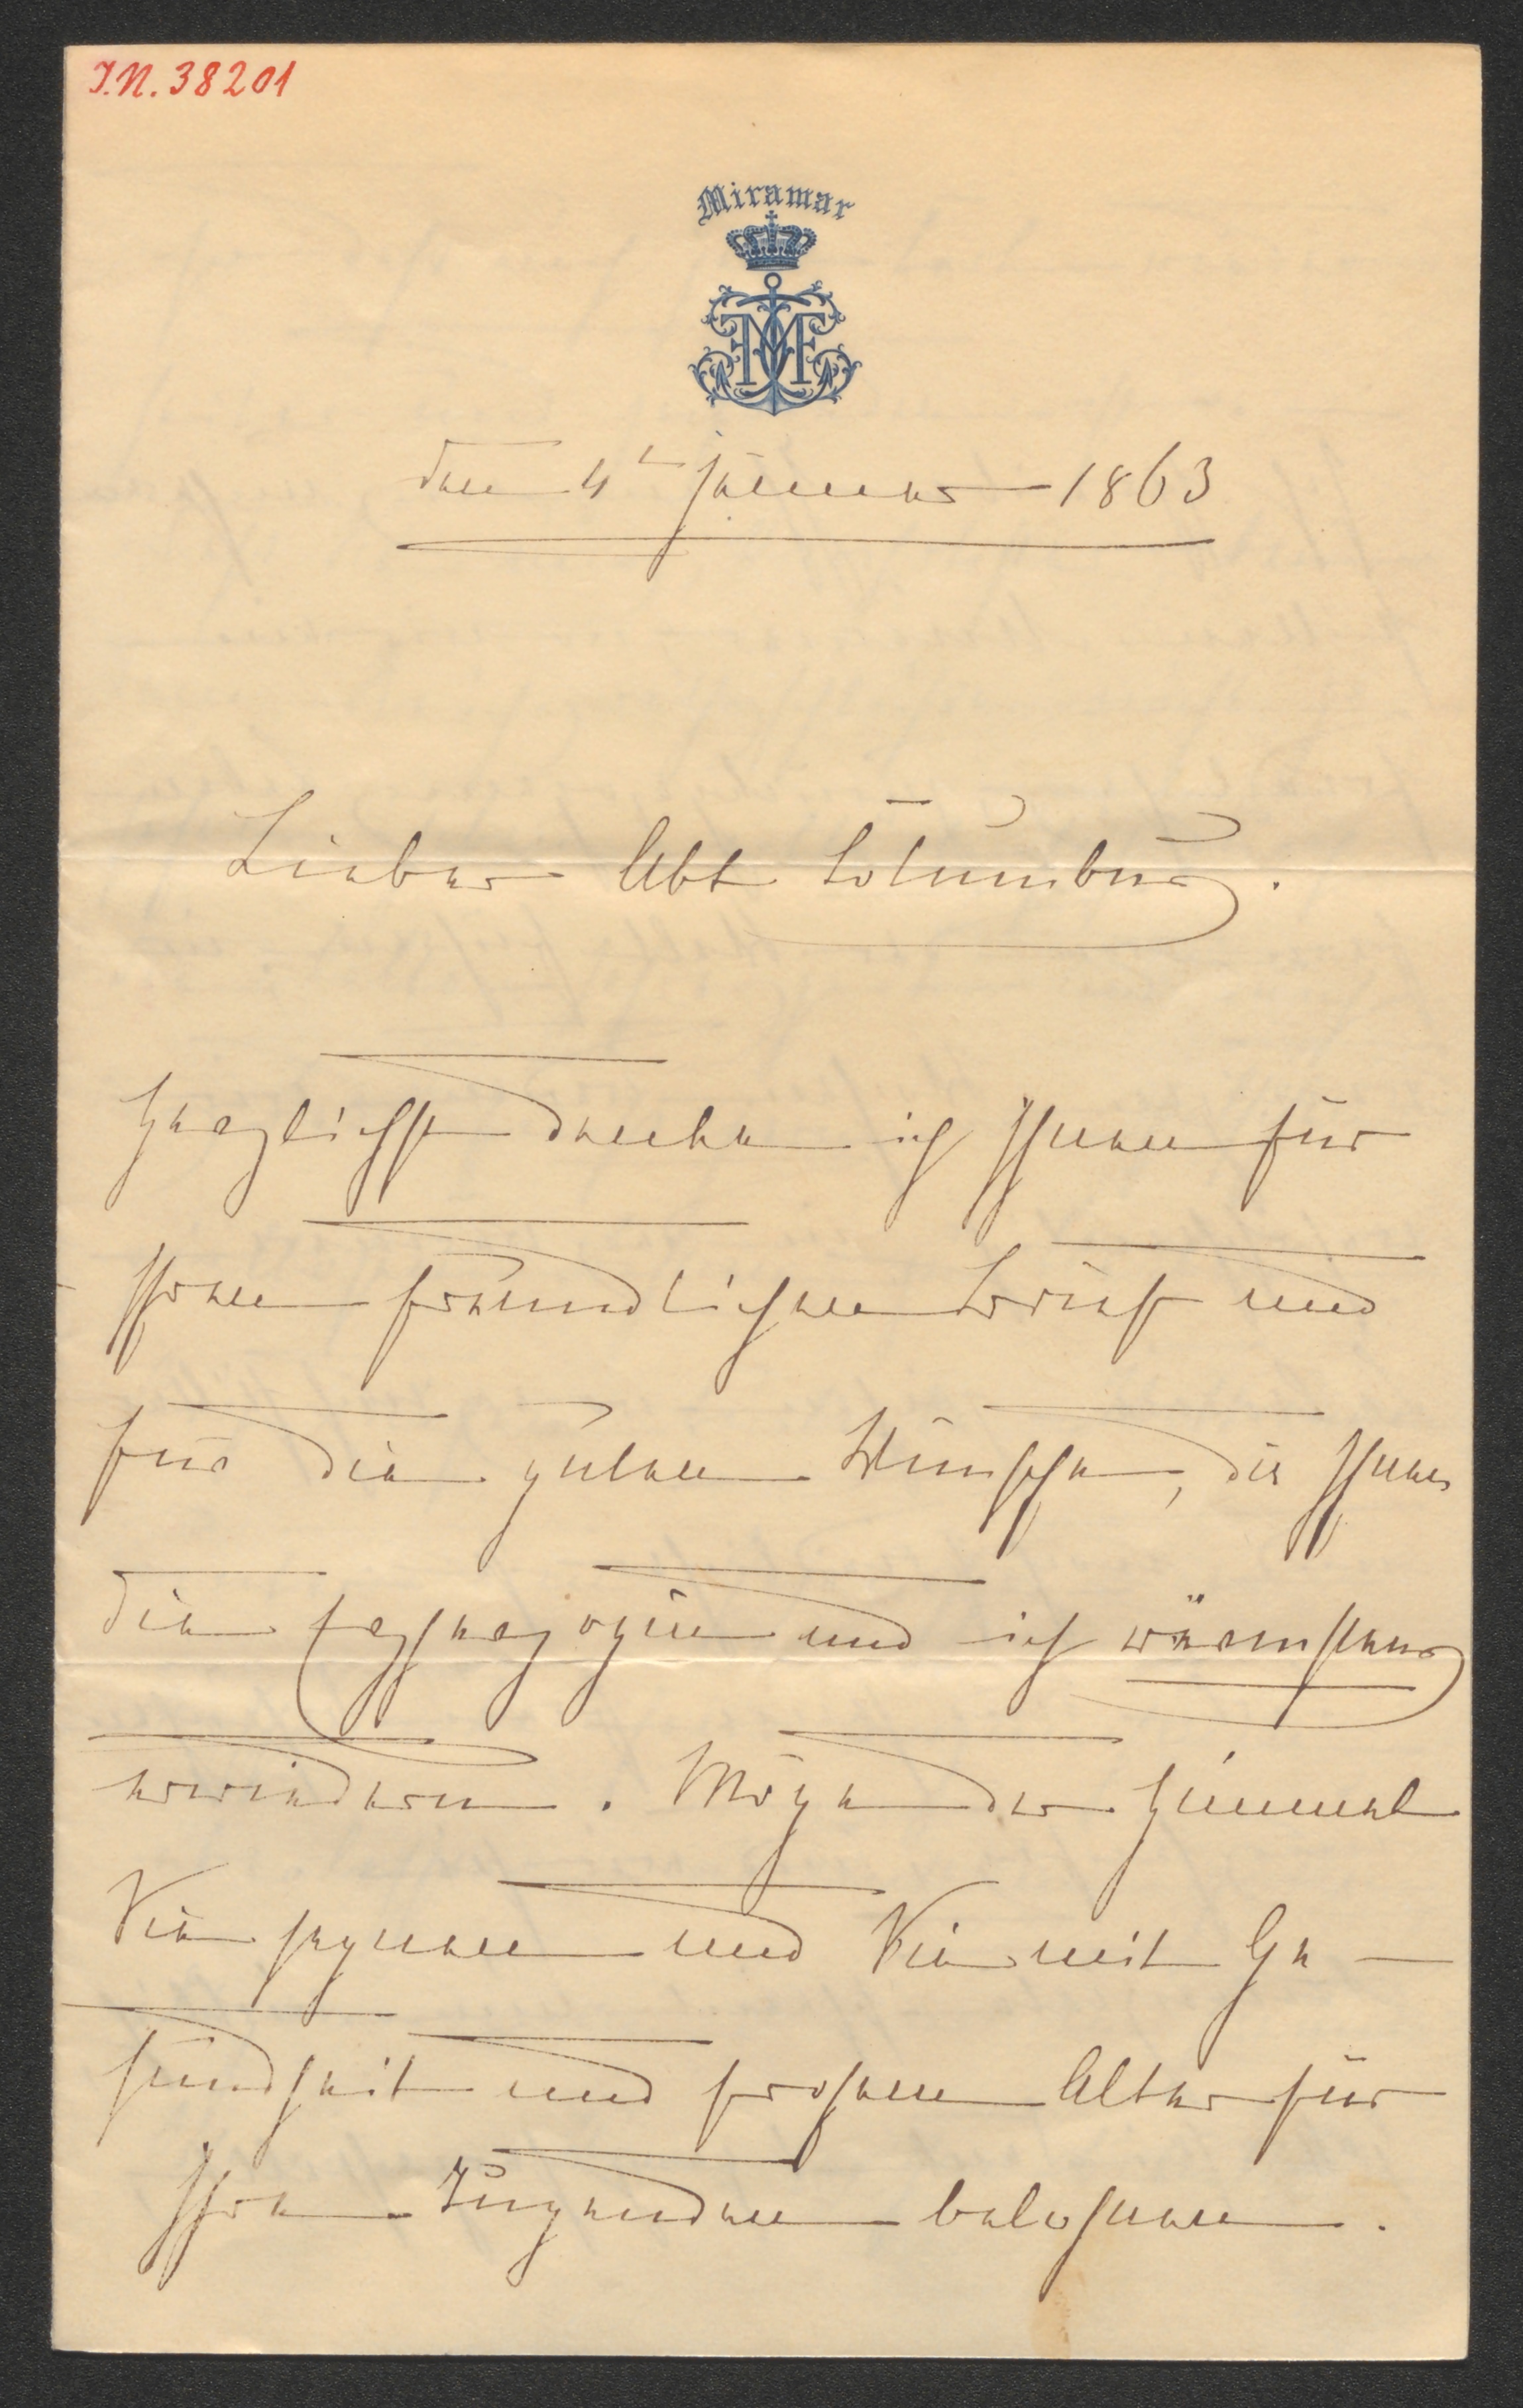 I.N. 38201
Miramar
den 4t Januar 1863
Lieber Abt Columbus.
Herzlichst danke ich Ihnen für
Ihren freundlichen Brief und
für die guten Wünsche, die Ihnen
die Erzherzogin und ich wärmstens
erwiedern. Möge der Himmel
Sie segnen und Sie mit Ge-
sundheit und frohem Alter für
Ihre Tugenden belohnen.